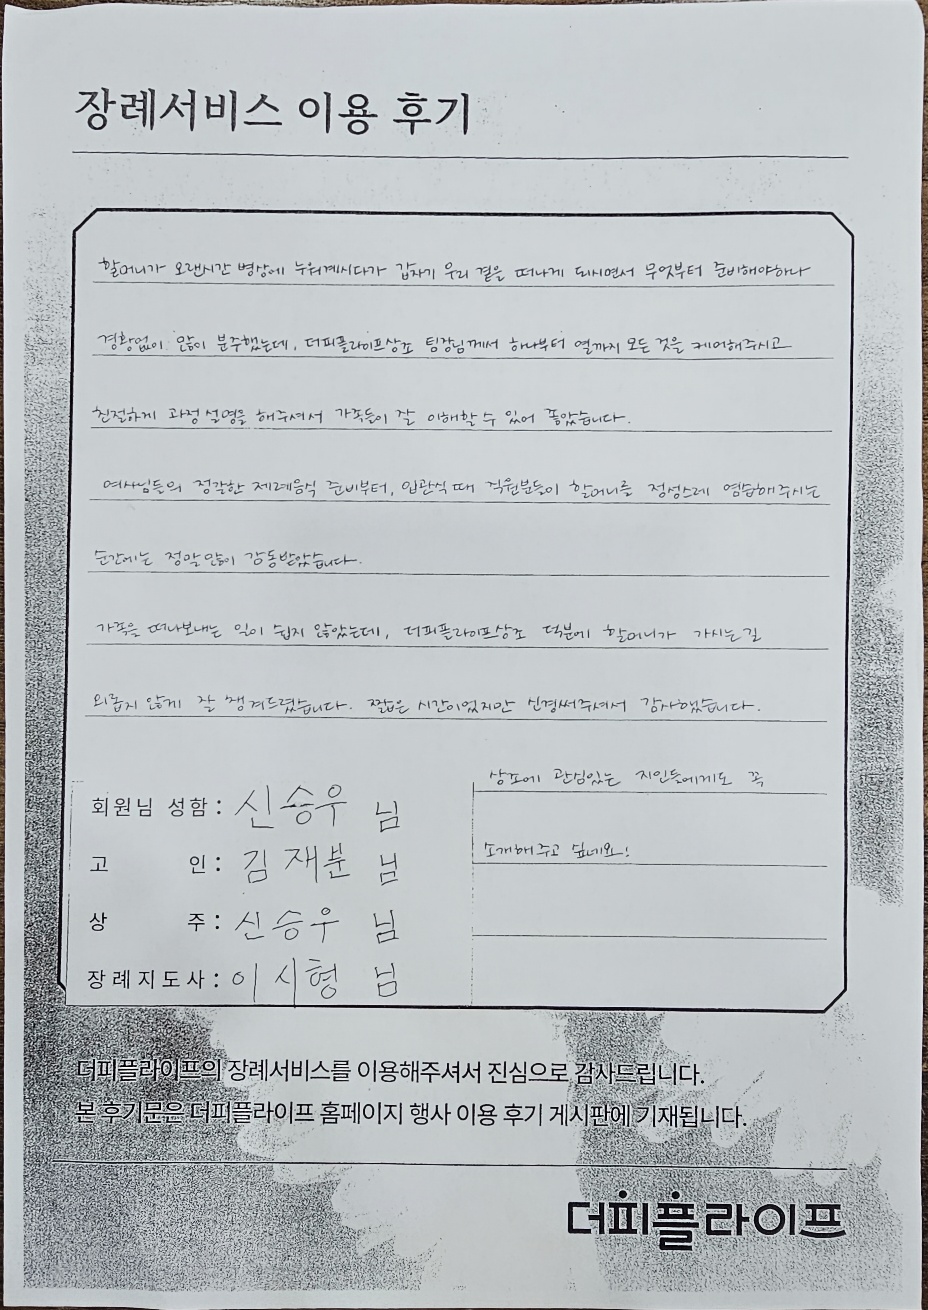 장례서비스 이용 후기
할머니가 오랜시간 병상에 누워계시다가 갑자기 우리 곁을 떠나게 되시면서 무엇부터 준비해야하나
경황없이 많이 분주했는데, 더피플라이프상조 팀장님께서 하나부터 열까지 모든 것을 케어해주시고
친절하게 과정 설명을 해주셔서 가족들이 잘 이해할 수 있어 좋았습니다.
여사님들의 정갈한 제례음식 준비부터, 입관식 때 직원분들이 할머니를 정성스레 염습해주시는
순간에는 정말 많이 감동받았습니다.
가족을 떠나보내는 일이 쉽지 않았는데, 더피플라이프상조 덕분에 할머니가 가시는 길
외롭지 않게 잘 챙겨드렸습니다. 짧은 시간이었지만 신경써주셔서 감사했습니다.
상조에 관심있는 지인들에게도 꼭
소개해주고 싶네요!
회원님 성함 : 신승우 님
고 인 : 김재분 님
상 주 : 신승우 님
장례지도사 : 이시형 님
더피플라이프의 장례서비스를 이용해주셔서 진심으로 감사드립니다.
본 후기문은 더피플라이프 홈페이지 행사 이용 후기 게시판에 기재됩니다.
더피플라이프